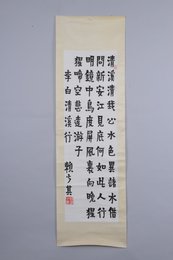 清溪清我心水色異諸水借
問新安江見底何如此人行
明鏡中鳥度屏風裏向晚猩
猩啼空悲遠游子
李白清溪行 賴少其